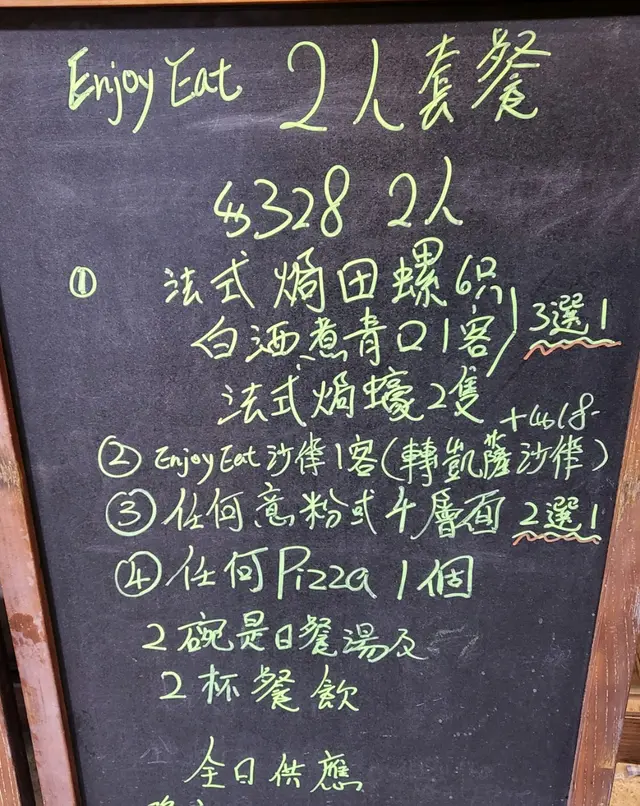 Enjoy Eat 2人套餐
$328 2人
① 法式焗田螺6只
白酒煮青口1客
3選1
法式焗蠔2隻
+$18-
② Enjoy Eat沙律1客(轉凱薩沙律)
③ 任何意粉或千層面 2選1
④ 任何Pizza 1個
2碗是日餐湯及
2杯餐飲
全日供應